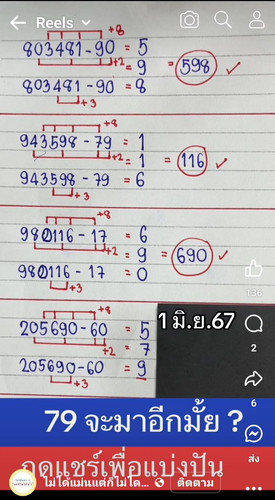 Reels
+8
803481-90 = 5
+2 = 9 = 598 ✓
803481-90 = 8
+3
+8
943598-79 = 1
+2 = 1 = 116 ✓
943598-79 = 6
+3
+8
980116-17 = 6
+2 = 9 = 690 ✓
980116-17 = 0
+3
136
+8
205690-60 = 5
1 มิ.ย.67
+2 = 7
2
205690-60 = 9
+3
6
79 จะมาอีกมั้ย ?
ส่ง
กดแชร์เพื่อแบ่งปัน
ไม่ได้แม่นแต่ก็ไม่ได้... ติดตาม